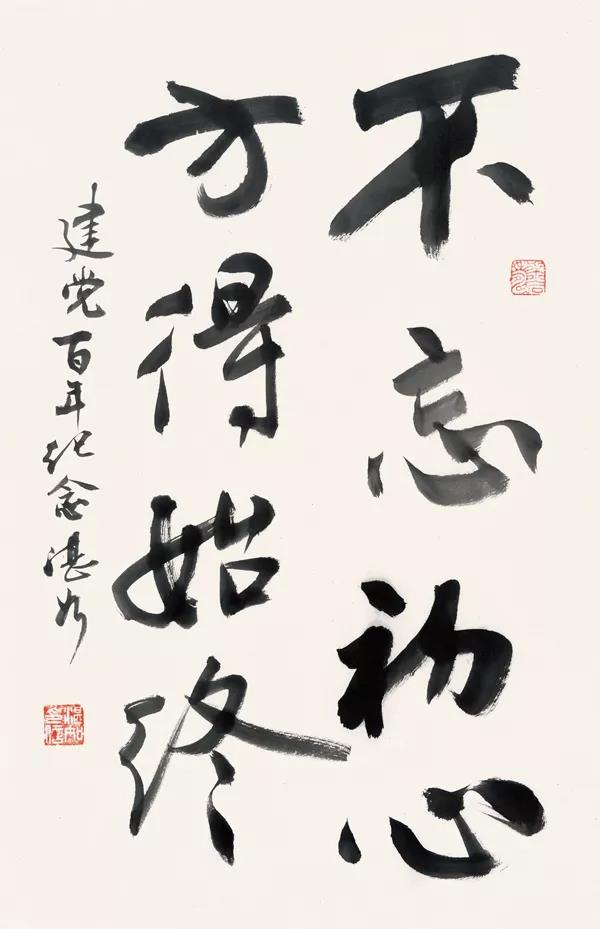 不忘初心
方得始终
建党百年纪念湛如